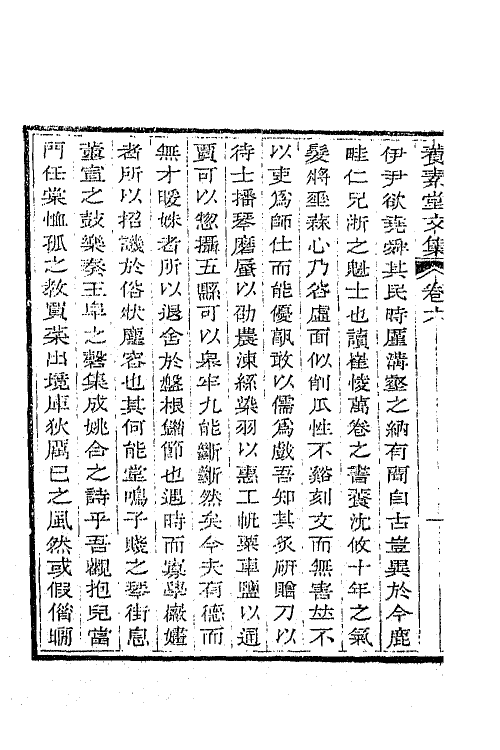 養素堂文集 卷六 一
伊尹欲堯舜其民時厪溝壑之納有商自古豈異於今鹿
畦仁兄浙之魁士也讀崔㥄萬卷之書養沈攸十年之氣
髮將垂秊心乃咎虛面似削瓜性不谿刻文而無害茲不
以吏為師仕而能優敢以儒為戲吾知其發硎贈刀以
待士播琴磨蜃以劭農湅絲染羽以惠工軏粟車鹽以通
賈可以惣攝五縣可以皋牢九能斷斷然矣今夫有德而
無才暖姝者所以退舍於盤根錯節也遇時而寡學婞
者所以招譏於俗狀塵容也其何能堂鳴子賤之琴街息
董宣之鼓樂奏王阜之磬集成姚合之詩乎吾觀抱兒當
門任棠恤孤之教買菜出境庫狄厲已之風然或假偕